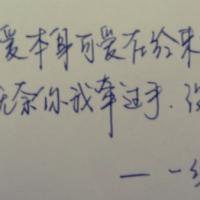 爱本身可爱在于束
无奈你我牵过手.没
— 一丝